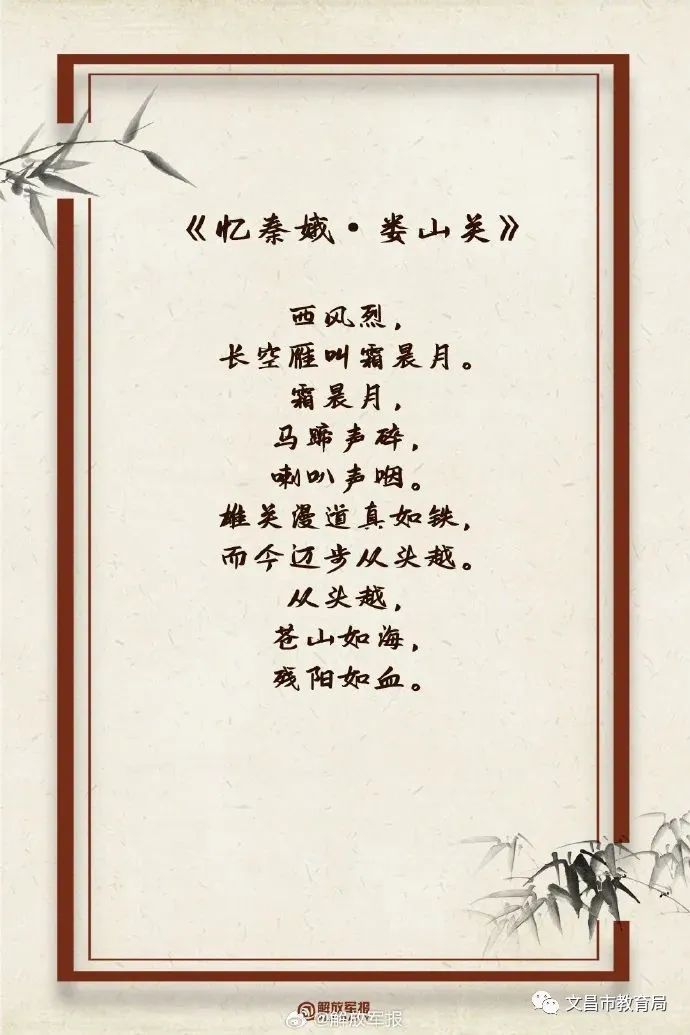 《忆秦娥·娄山关》
西风烈，
长空雁叫霜晨月。
霜晨月，
马蹄声碎，
喇叭声咽。
雄关漫道真如铁，
而今迈步从头越。
从头越，
苍山如海，
残阳如血。
@解放军报
@解放军报
文昌市教育局